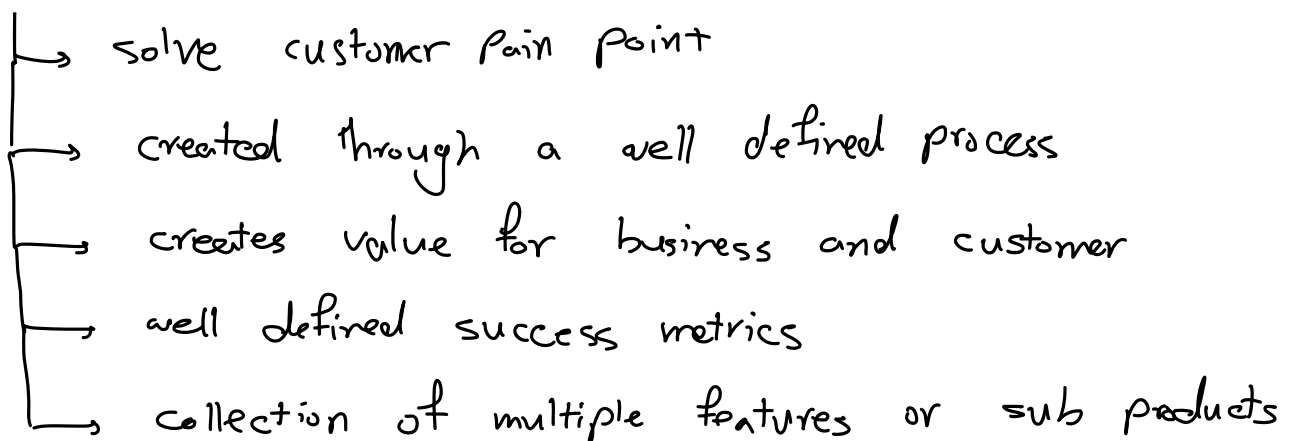 solve customer pain point
created through a well defined process
creates value for business and customer
well defined success metrics
collection of multiple features or sub products